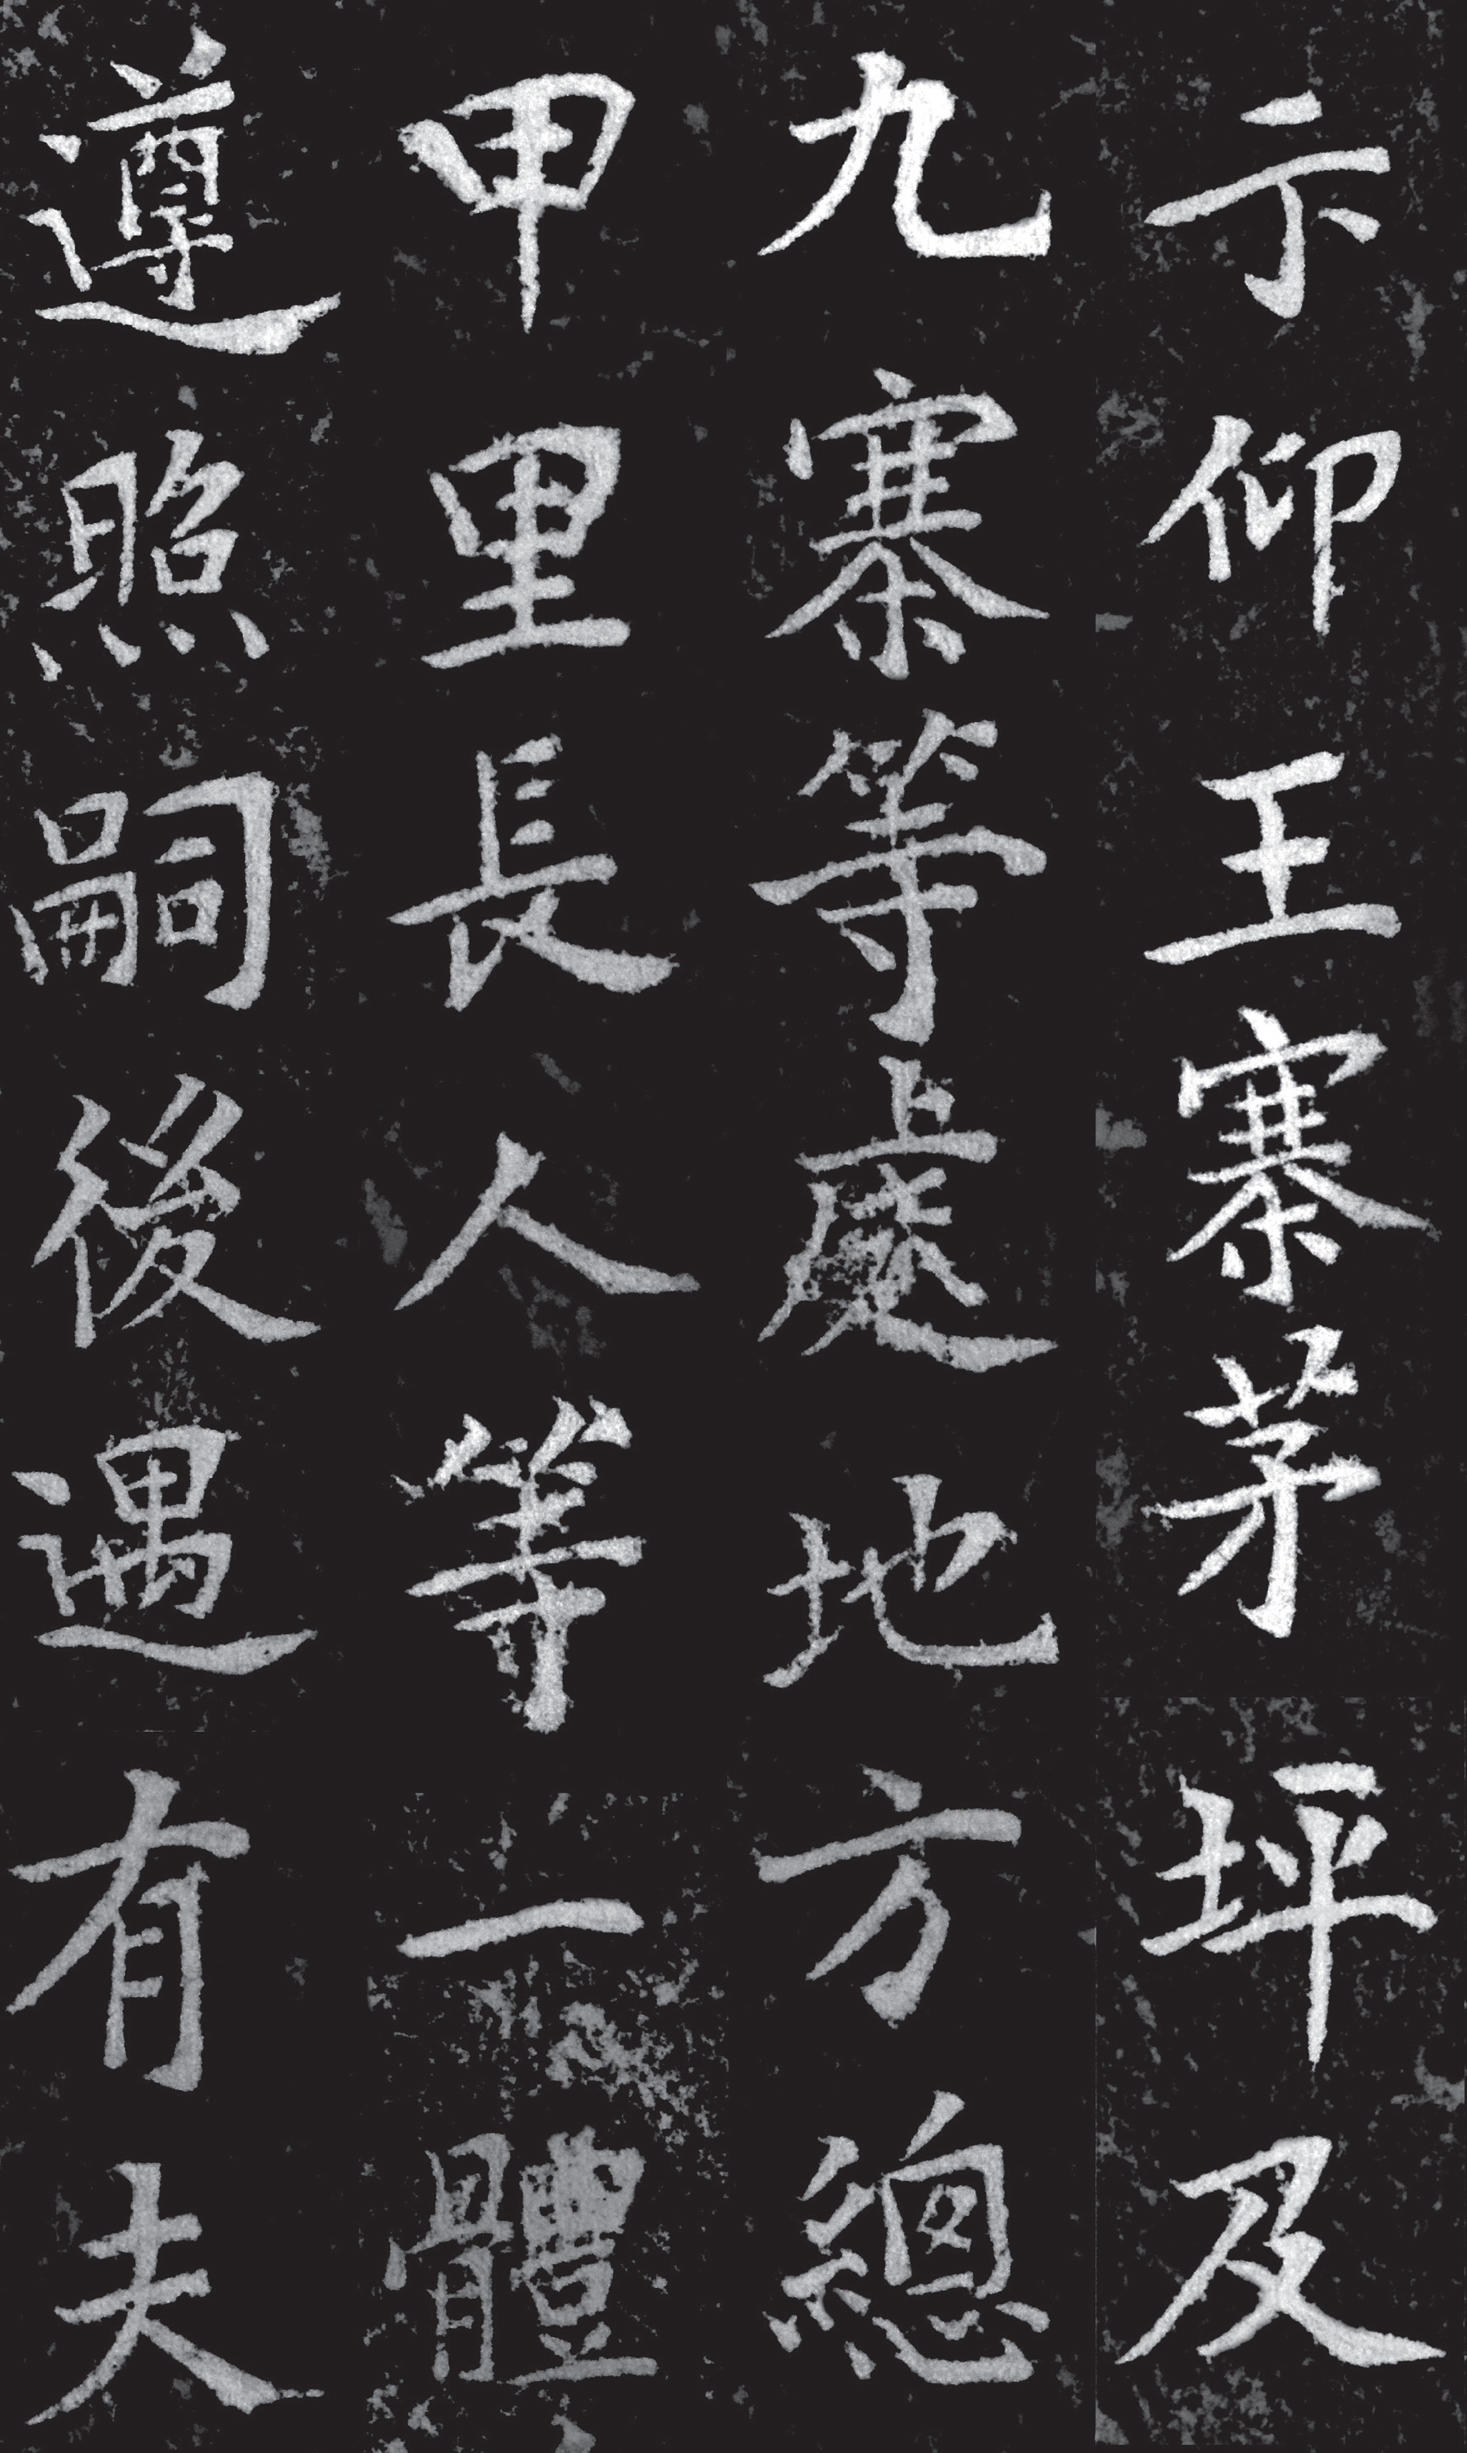 示仰王寨茅坪及
九寨等處地方總
甲里長人等一體
遵照嗣後遇有夫